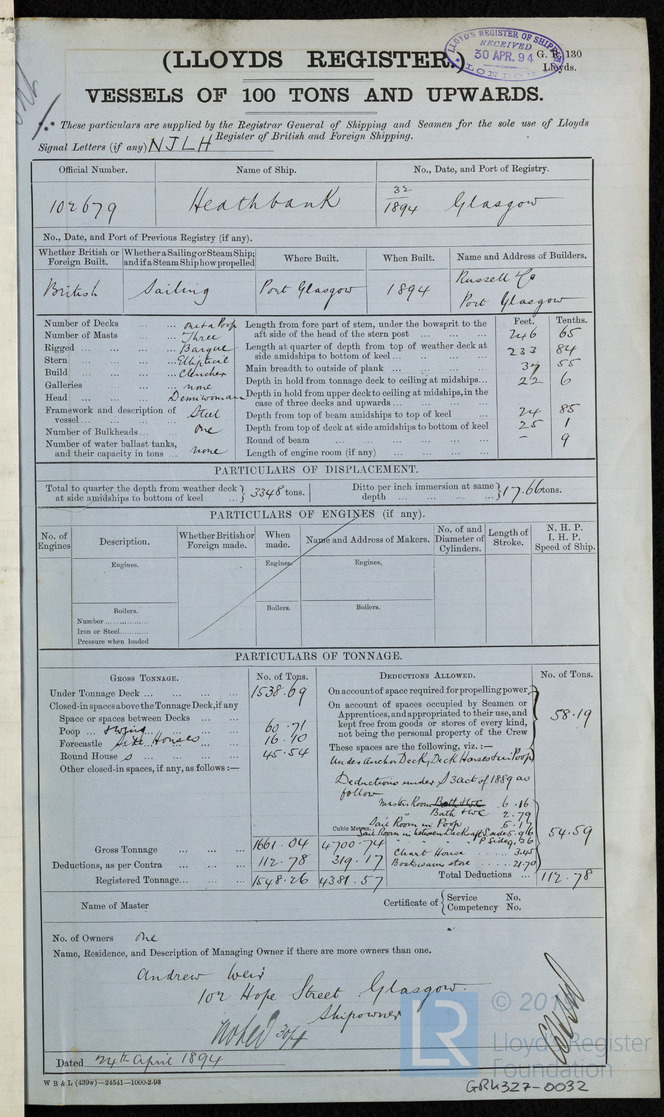 (LLOYDS REGISTER.)
LLOYD'S REGISTER OF SHIPPING
RECEIVED
30 APR. 94
LONDON
G. R. 130
Lloyds.
VESSELS OF 100 TONS AND UPWARDS.
These particulars are supplied by the Registrar General of Shipping and Seamen for the sole use of Lloyds
Register of British and Foreign Shipping.
Signal Letters (if any) NJLH
Official Number. Name of Ship. No., Date, and Port of Registry.
102679 Heathbank 32/1894 Glasgow
No., Date, and Port of Previous Registry (if any).
Whether British or Foreign Built. Whether a Sailing or Steam Ship; and if a Steam Ship how propelled Where Built. When Built. Name and Address of Builders.
British Sailing Port Glasgow 1894 Russell & Co Port Glasgow
Feet. Tenths.
Number of Decks ... ... one & a Poop
Number of Masts ... ... Three
Rigged ... ... ... Barque
Stern ... ... ... Elliptical
Build ... ... ... Clencher
Galleries ... ... none
Head ... ... ... Demiwoman
Framework and description of vessel ... ... ... Steel
Number of Bulkheads... ... One
Number of water ballast tanks, and their capacity in tons ... none
Length from fore part of stem, under the bowsprit to the aft side of the head of the stern post ... ... ... 246 65
Length at quarter of depth from top of weather deck at side amidships to bottom of keel ... ... ... 233 84
Main breadth to outside of plank ... ... ... 37 55
Depth in hold from tonnage deck to ceiling at midships... 22 6
Depth in hold from upper deck to ceiling at midships, in the case of three decks and upwards ... ... ...
Depth from top of beam amidships to top of keel ... 24 85
Depth from top of deck at side amidships to bottom of keel 25 1
Round of beam ... ... ... - 9
Length of engine room (if any) ... ... ...
PARTICULARS OF DISPLACEMENT.
Total to quarter the depth from weather deck at side amidships to bottom of keel ... 3348 tons. Ditto per inch immersion at same depth ... ... 17.66 tons.
PARTICULARS OF ENGINES (if any).
No. of Engines Description. Whether British or Foreign made. When made. Name and Address of Makers. No. of and Diameter of Cylinders. Length of Stroke. N. H. P. I. H. P. Speed of Ship.
Engines. Engines. Engines.
Boilers. Boilers. Boilers.
Number
Iron or Steel
Pressure when loaded
PARTICULARS OF TONNAGE.
GROSS TONNAGE. No. of Tons. DEDUCTIONS ALLOWED. No. of Tons.
Under Tonnage Deck ... ... ... 1538.69
Closed-in spaces above the Tonnage Deck, if any
Space or spaces between Decks ... ...
Poop ... ... 60.71
Forecastle ... 16.10
Round House s ... ... 45.54
Other closed-in spaces, if any, as follows:—
Gross Tonnage ... ... 1661.04 4700.74
Deductions, as per Contra ... ... 112.78 319.17
Registered Tonnage... ... 1548.26 4381.57
Cubic Metres.
On account of space required for propelling power.
On account of spaces occupied by Seamen or Apprentices, and appropriated to their use, and kept free from goods or stores of every kind, not being the personal property of the Crew 58.19
These spaces are the following, viz.:—
Under Anchor Deck, Deck Houses & in Poop
Deductions under S 3 act of 1889 as follow
Master Room 6.16
Bath &c 2.79
Sail Room in Poop
Chart House ... 3.45
Boatswains store ... 21.70
54.59
Total Deductions ... 112.78
Name of Master Certificate of { Service No. Competency No.
No. of Owners One
Name, Residence, and Description of Managing Owner if there are more owners than one.
Andrew Weir
102 Hope Street Glasgow.
Shipowner
noted 30/4
Dated 24th April 1894
W B & L (439w)—24541—1000-2-93
LR
Lloyd's Register
Foundation
GRK327-0032